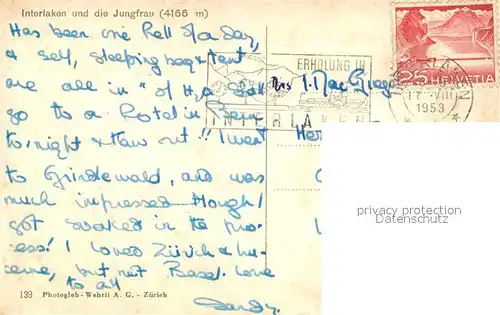 Interlaken und die Jungfrau (4166 m)
Has been one Hell of a day,
& self, sleeping bag & tent
are all in " of H20. Shall
go to a Hotel in Bern
to/night & thaw out! I went
to Grindewald, and was
much impressed though I
got soaked in the pro-
cess! I loved Zürich & Lu-
cerne, but not Basel. Love
to all
Sandy.
139 Photoglob-Wehrli A. G. - Zürich
ERHOLUNG IN
INTERLAKEN
25 HELVETIA
INTERLAKEN
1953
Mrs I. MacGreg
Her
privacy protection
watermark